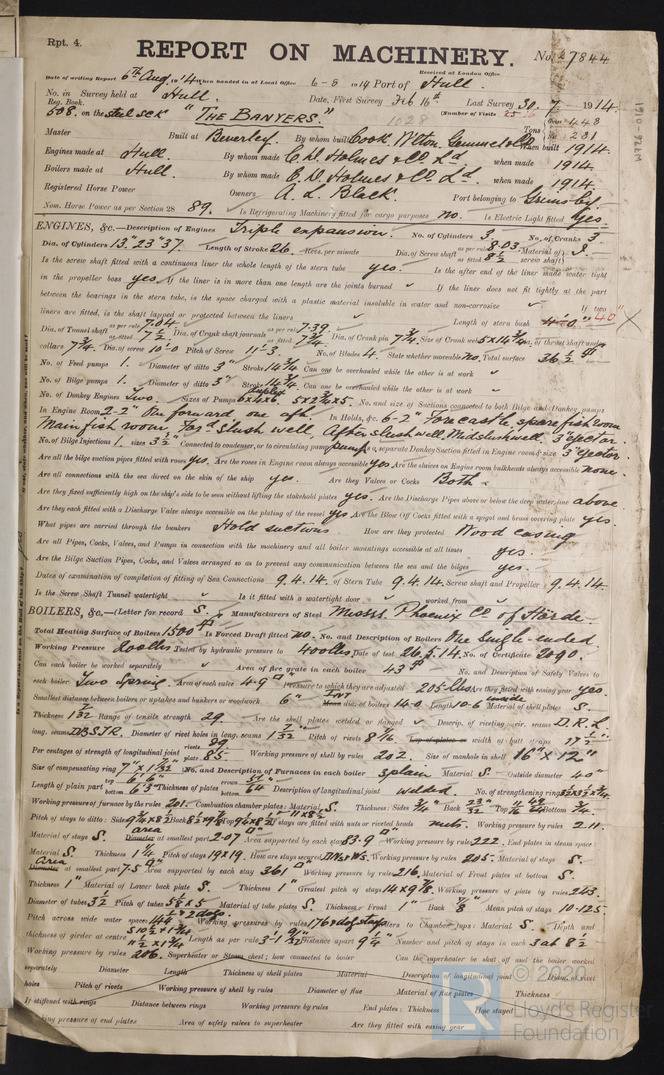 Rpt. 4.
REPORT ON MACHINERY.
No. 27844
Received at London Office
Date of writing Report 6th Aug 1914 When handed in at Local Office 6-8 1914 Port of Hull.
No. in Survey held at Hull. Date, First Survey Feb 16th Last Survey 30. 7. 1914.
Reg. Book. (Number of Visits
508. on the steel sck "THE BANYERS." 1028
Tons Gross 448 Net 231
Master Built at Beverley. By whom built Cook, Welton, Gemmell When built 1914.
Engines made at Hull. By whom made C. D. Holmes & Co. Ld. when made 1914.
Boilers made at Hull. By whom made C. D. Holmes & Co. Ld. when made 1914.
Registered Horse Power Owners A. L. Black. Port belonging to Grimsby.
Nom. Horse Power as per Section 28 89. Is Refrigerating Machinery fitted for cargo purposes no. Is Electric Light fitted yes.
ENGINES, &c.—Description of Engines Triple expansion. No. of Cylinders 3. No. of Cranks 3
Dia. of Cylinders 13" 23" 37" Length of Stroke 26. Revs. per minute Dia. of Screw shaft as per rule 8.03 as fitted 8 1/2 Material of screw shaft S.
Is the screw shaft fitted with a continuous liner the whole length of the stern tube yes. Is the after end of the liner made water tight
in the propeller boss yes. If the liner is in more than one length are the joints burned If the liner does not fit tightly at the part
between the bearings in the stern tube, is the space charged with a plastic material insoluble in water and non-corrosive If two
liners are fitted, is the shaft lapped or protected between the liners Length of stern bush 40"
Dia. of Tunnel shaft as per rule 7.04 as fitted 7 1/2 Dia. of Crank shaft journals as per rule 7.39 as fitted 7 3/4 Dia. of Crank pin 7 3/4 Size of Crank webs 5 x 14 3/4 Dia. of thrust shaft under
collars 7 3/4 Dia. of screw 10-0 Pitch of Screw 11-3. No. of Blades 4. State whether moveable no. Total surface 36 1/2
No. of Feed pumps 1. Diameter of ditto 3" Stroke 14 3/4 Can one be overhauled while the other is at work
No. of Bilge pumps 1. Diameter of ditto 3" Stroke 14 3/4 Can one be overhauled while the other is at work
No. of Donkey Engines Two. Sizes of Pumps Duplex 6x4x6 5 x 2 3/4 x 5. No. and size of Suctions connected to both Bilge and Donkey pumps
In Engine Room 2-2" One forward one aft In Holds, &c. 6-2" Forecastle, spare fish room
Main fish room, For'd slush well, After slush well, Mid slushwell, 3" ejector.
No. of Bilge Injections 1. sizes 3 1/2" Connected to condenser, or to circulating pump pump Is a separate Donkey Suction fitted in Engine room & size 3" ejector
Are all the bilge suction pipes fitted with roses yes. Are the roses in Engine room always accessible yes Are the sluices on Engine room bulkheads always accessible none.
Are all connections with the sea direct on the skin of the ship yes. Are they Valves or Cocks Both.
Are they fixed sufficiently high on the ship's side to be seen without lifting the stokehold plates yes. Are the Discharge Pipes above or below the deep water line above
Are they each fitted with a Discharge Valve always accessible on the plating of the vessel yes Are the Blow Off Cocks fitted with a spigot and brass covering plate yes.
What pipes are carried through the bunkers Hold suctions How are they protected Wood casing
Are all Pipes, Cocks, Valves, and Pumps in connection with the machinery and all boiler mountings accessible at all times yes.
Are the Bilge Suction Pipes, Cocks, and Valves arranged so as to prevent any communication between the sea and the bilges yes.
Dates of examination of completion of fitting of Sea Connections 9.4.14. of Stern Tube 9.4.14. Screw shaft and Propeller 9.4.14.
Is the Screw Shaft Tunnel watertight Is it fitted with a watertight door worked from
BOILERS, &c.—(Letter for record S.) Manufacturers of Steel Messrs. Phoenix Co of Hörde.
Total Heating Surface of Boilers 1500 Is Forced Draft fitted no. No. and Description of Boilers One single-ended.
Working Pressure 200 lbs Tested by hydraulic pressure to 400 lbs. Date of test 26.5.14. No. of Certificate 2090.
Can each boiler be worked separately Area of fire grate in each boiler 43 No. and Description of Safety Valves to
each boiler Two Spring. Area of each valve 4.9 Pressure to which they are adjusted 205 lbs. Are they fitted with easing gear yes.
Smallest distance between boilers or uptakes and bunkers or woodwork 6" dia. of boilers 14-0 Length 10-6 Material of shell plates S.
Thickness 1 7/32 Range of tensile strength 29. Are the shell plates welded or flanged Descrip. of riveting: cir. seams D.R.L
long. seams D.B.S.T.R. Diameter of rivet holes in long. seams 1 7/32 Pitch of rivets 8 7/16 width of butt straps 17 1/2"
Per centages of strength of longitudinal joint rivets 89 plate 85. Working pressure of shell by rules 202. Size of manhole in shell 16" x 12"
Size of compensating ring 7" x 1 7/32" No. and Description of Furnaces in each boiler 3 plain Material S. Outside diameter 40"
Length of plain part top 6'6" bottom 6'3" Thickness of plates crown bottom 64 Description of longitudinal joint welded. No. of strengthening rings
Working pressure of furnace by the rules 201. Combustion chamber plates: Material S. Thickness: Sides 3/4" Back 23/32 Top Bottom 3/4.
Pitch of stays to ditto: Sides 9 1/4 x 8 1/2 Back 8 1/2 x 9 1/2 Top If stays are fitted with nuts or riveted heads nuts. Working pressure by rules 211.
Material of stays S. area Diameter at smallest part 2.07 Area supported by each stay 83.9 Working pressure by rule 222. End plates in steam space
Material S. Thickness 1 1/4 Pitch of stays 19 x 19. How are stays secured D.N.&W.S. Working pressure by rules 205. Material of stays S.
Area Diameter at smallest part 7.5 Area supported by each stay 361 Working pressure by rules 216. Material of Front plates at bottom S.
Thickness 1" Material of Lower back plate S. Thickness 1" Greatest pitch of stays 14 x 9 7/8. Working pressure of plate by rules 243.
Diameter of tubes 3 1/2 Pitch of tubes 5 1/8 x 5 Material of tube plates S. Thickness: Front 1" Back 7/8" Mean pitch of stays 10.125.
Pitch across wide water spaces 14 1/2 Working pressures by rules 176 + dogstays Girders to Chamber tops: Material S. Depth and
thickness of girder at centre Length as per rule Distance apart 9 1/4" Number and pitch of stays in each 3 at 8 1/2
Working pressure by rules 206. Superheater or Steam chest; how connected to boiler Can the superheater be shut off and the boiler worked
separately Diameter Length Thickness of shell plates Material Description of longitudinal joint Diam. of rivet
holes Pitch of rivets Working pressure of shell by rules Diameter of flue Material of flue plates Thickness
If stiffened with rings Distance between rings Working pressure by rules End plates: Thickness How stayed
Working pressure of end plates Area of safety valves to superheater Are they fitted with easing gear
© 2020
Lloyd's Register
Foundation